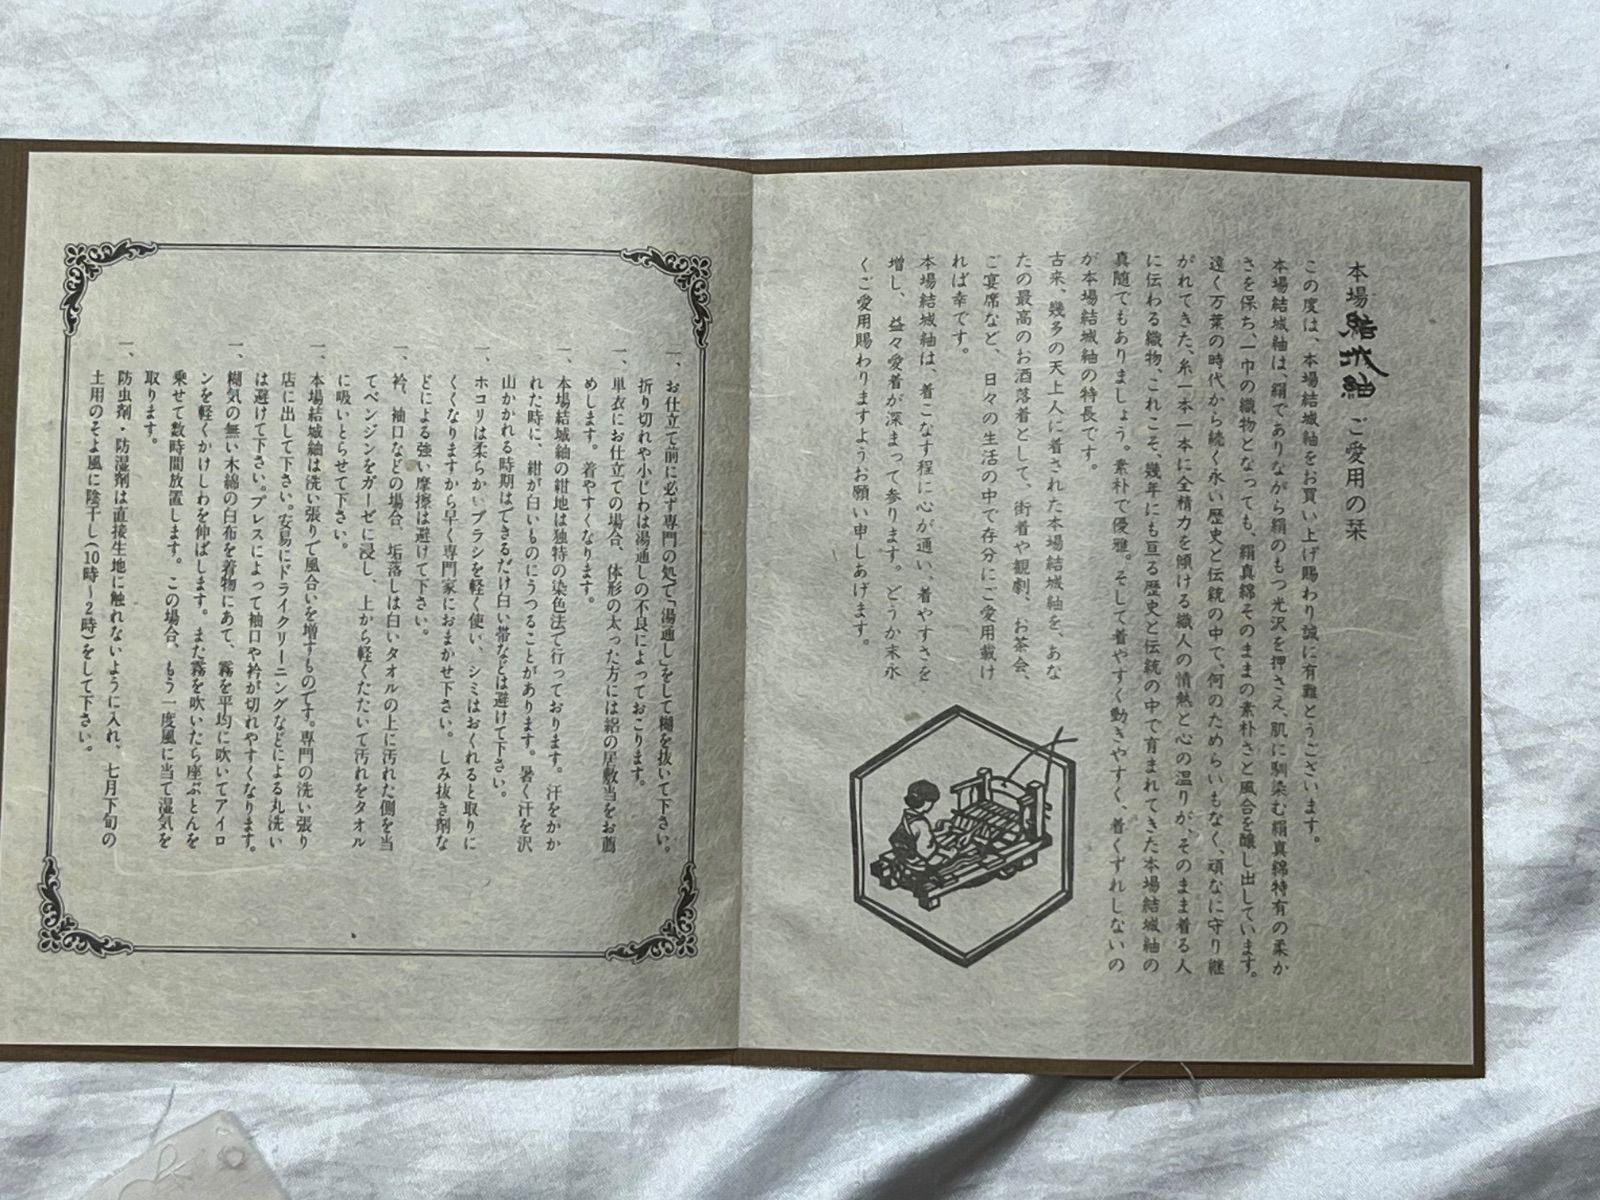 本場結城紬ご愛用の栞
この度は、本場結城紬をお買い上げ賜わり誠に有難とうございます。
本場結城紬は、絹でありながら絹のもつ光沢を押さえ、肌に馴染む絹真綿特有の柔か
さを保ち、一巾の織物となっても、絹真綿そのままの素朴さと風合を醸し出しています。
遠く万葉の時代から続く永い歴史と伝統の中で、何のためらいもなく、頑なに守り継
がれてきた、糸一本一本に全精力を傾ける織人の情熱と心の温りが、そのまま着る人
に伝わる織物、これこそ、幾年にも亘る歴史と伝統の中で育まれてきた本場結城紬の
真随でもありましょう。素朴で優雅。そして着やすく動きやすく、着くずれしないの
が本場結城紬の特長です。
古来、幾多の天上人に着された本場結城紬を、あな
たの最高のお洒落着として、街着や観劇、お茶会、
ご宴席など、日々の生活の中で存分にご愛用載け
れば幸です。
本場結城紬は、着こなす程に心が通い、着やすさを
増し、益々愛着が深まって参ります。どうか末永
くご愛用賜わりますようお願い申しあげます。
一、お仕立て前に必ず専門の処で「湯通し」をして糊を抜いて下さい。
折り切れや小じわは湯通しの不良によっておこります。
一、単衣にお仕立ての場合、体形の太った方には絽の居敷当をお薦
めします。着やすくなります。
一、本場結城紬の紺地は独特の染色法で行っております。汗をかか
れた時に、紺が白いものにうつることがあります。暑く汗を沢
山かかれる時期はできるだけ白い帯などは避けて下さい。
一、ホコリは柔らかいブラシを軽く使い、シミはおくれると取りに
くくなりますから早く専門家におまかせ下さい。しみ抜き剤な
どによる強い摩擦は避けて下さい。
一、衿、袖口などの場合、垢落しは白いタオルの上に汚れた側を当
てベンジンをガーゼに浸し、上から軽くたたいて汚れをタオル
に吸いとらせて下さい。
一、本場結城紬は洗い張りで風合いを増すものです。専門の洗い張り
店に出して下さい。安易にドライクリーニングなどによる丸洗い
は避けて下さい。プレスによって袖口や衿が切れやすくなります。
一、糊気の無い木綿の白布を着物にあて、霧を平均に吹いてアイロ
ンを軽くかけしわを伸ばします。また霧を吹いたら座ぶとんを
乗せて数時間放置します。この場合、もう一度風に当て湿気を
取ります。
一、防虫剤・防湿剤は直接生地に触れないように入れ、七月下旬の
土用のそよ風に陰干し(10時〜2時)をして下さい。